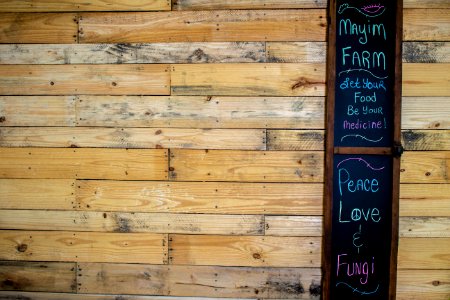 Mayim
Farm
Let Your
Food
Be Your
Medicine!
Peace
Love
&
Fungi